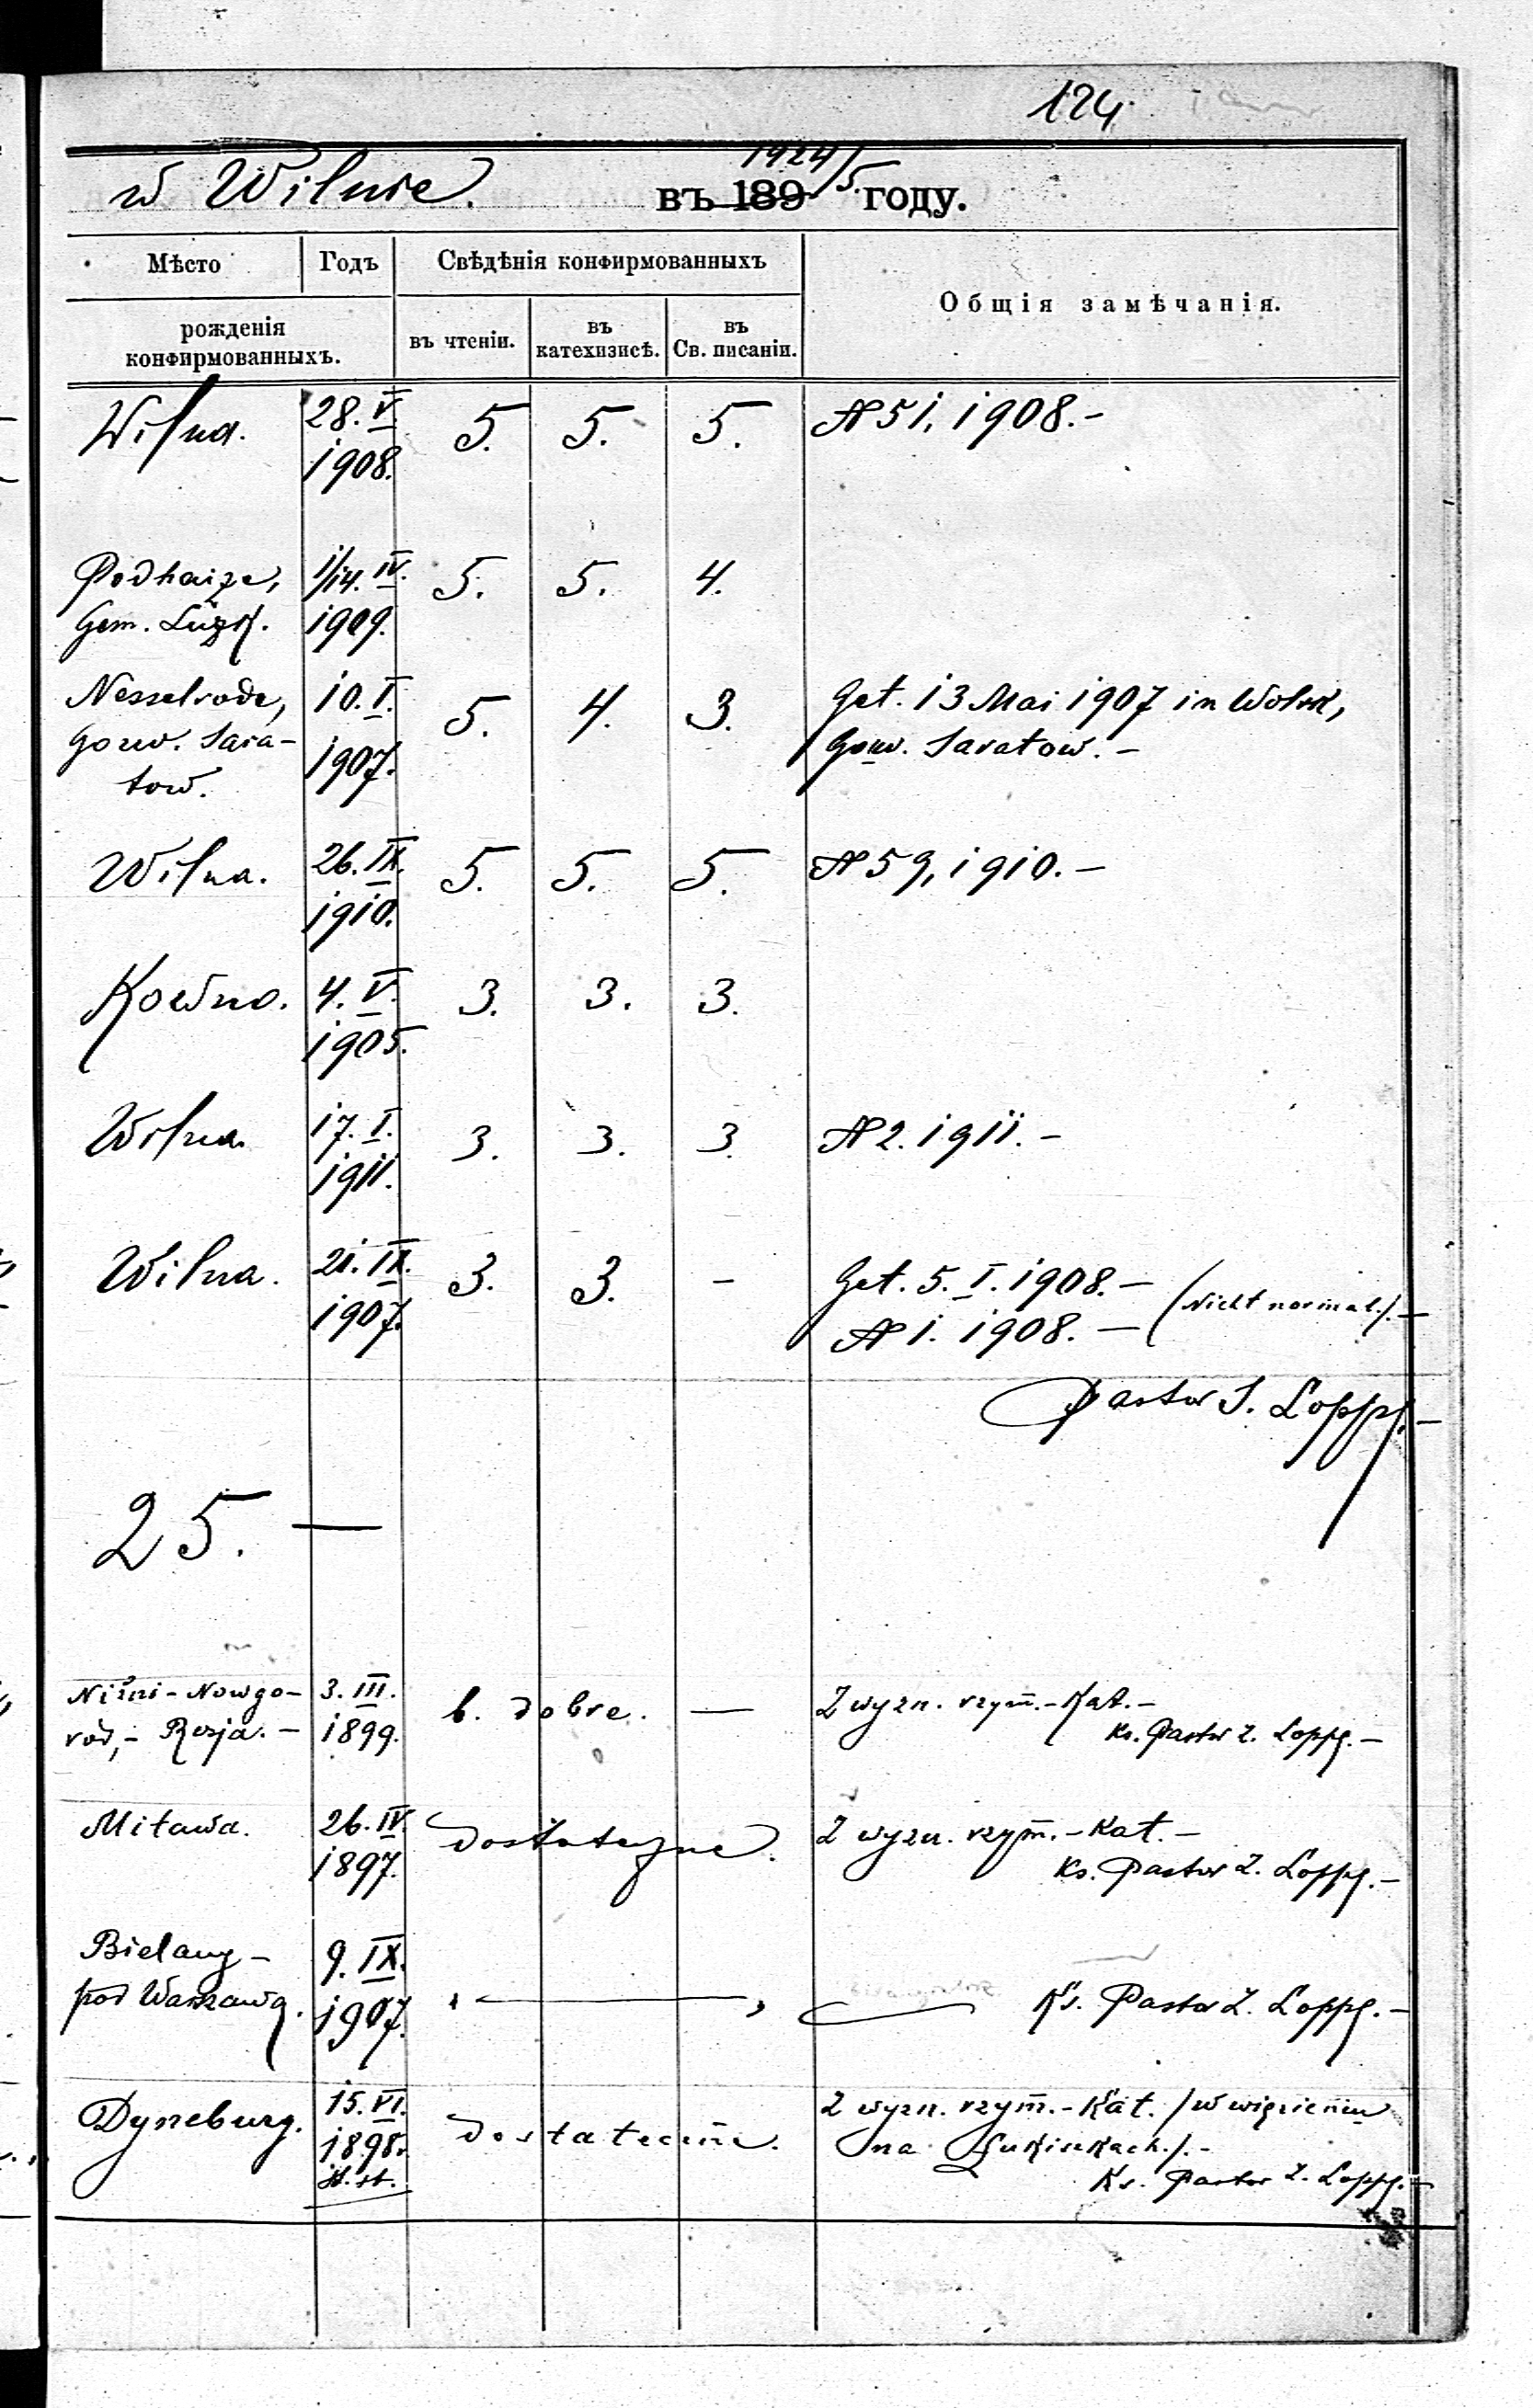 124.
w Wilnie. въ 189 1924/5. году.
Мѣсто Годъ Свѣдѣнія конфирмованныхъ
Общія замѣчанія.
рожденія
конфирмованныхъ.
въ чтеніи. въ катехизисѣ. въ Св. писаніи.
Wilna. 28. V. 5. 5. 5. N 51, 1908.-
1908.
Podhaize, 1/14. IV. 5. 5. 4.
Gem. Lüzk. 1909.
Nesselrode, 10. I. 5. 4. 3. Get. 13 Mai 1907 in Wolsk,
Gouv. Sara- 1907. Gouv. Saratow.-
tow.
Wilna. 26. IX. 5. 5. 5. N 59, 1910.-
1910.
Kowno. 4. V. 3. 3. 3.
1905.
Wilna. 17. I. 3. 3. 3. N 2. 1911.-
1911.
Wilna. 21. IX. 3. 3. - Get. 5. I. 1908.-
1907. N 1. 1908.- (Nicht normal.).-
Pastor S. Loppe.-
25. —
Niżni-Nowgo- 3. III. b. dobre. — Z wyzn. rzym.-Kat.-
rod,- Rosja.- 1899. Ks. Pastor Z. Loppe.-
Mitawa. 26. IV. dostateczne. Z wyzn. rzym.-Kat.-
1897. Ks. Pastor Z. Loppe.-
Bielany- 9. IX.
pod Warszawą. 1907. „ — „ Ks. Pastor Z. Loppe.-
Dyneburg. 15. VI. dostateczne. Z wyzn. rzym.-Kat. /w więzieniu
1898. na Łukiszkach./.-
st. st. Ks. Pastor Z. Loppe.-